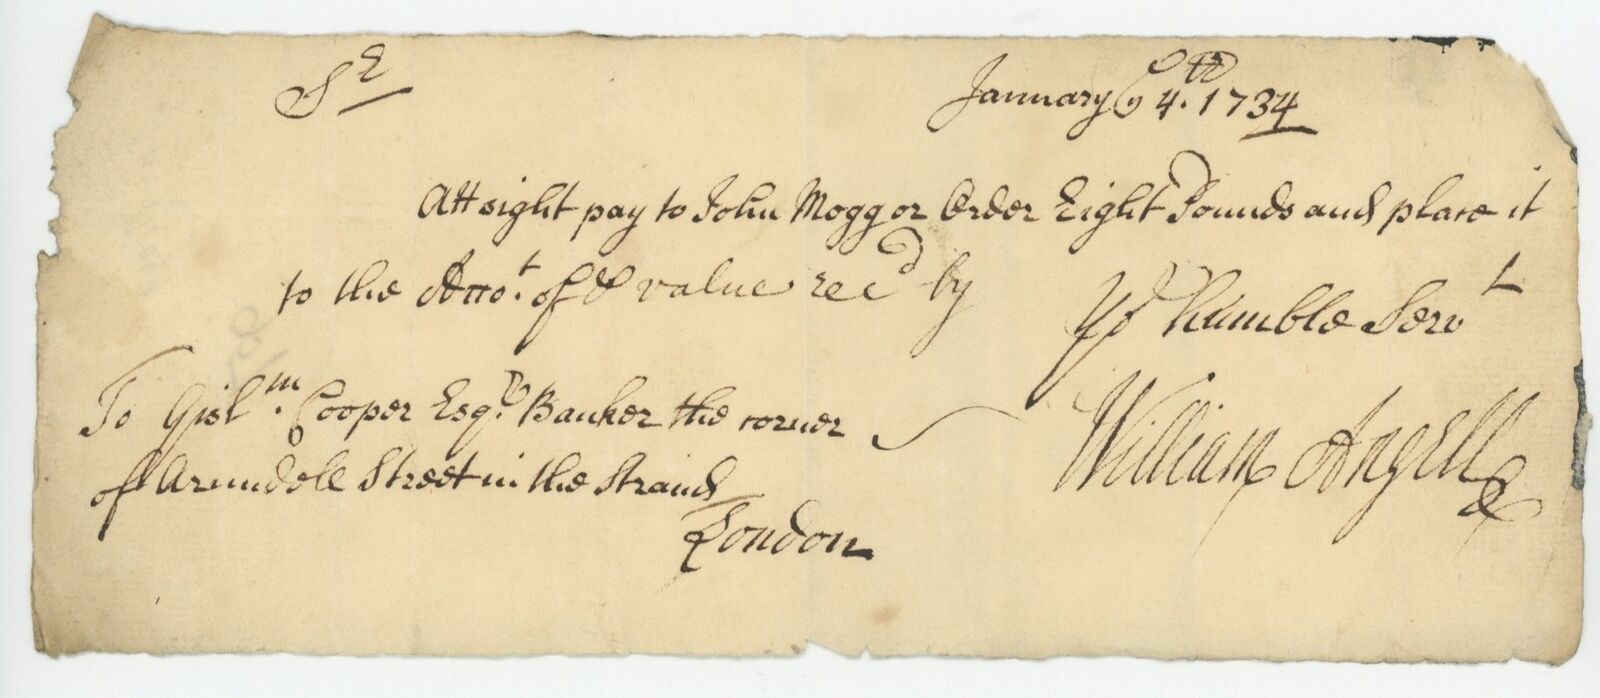 Sr
January ye 4th. 1734
Att sight pay to John Mogg or Order Eight Pounds and place it
to the Acco.t of & value rec'd by
Yr humble Servt
William Angell
To Gisl.m Cooper Esq.r Banker the corner
of Arundele Street in the Strand
London